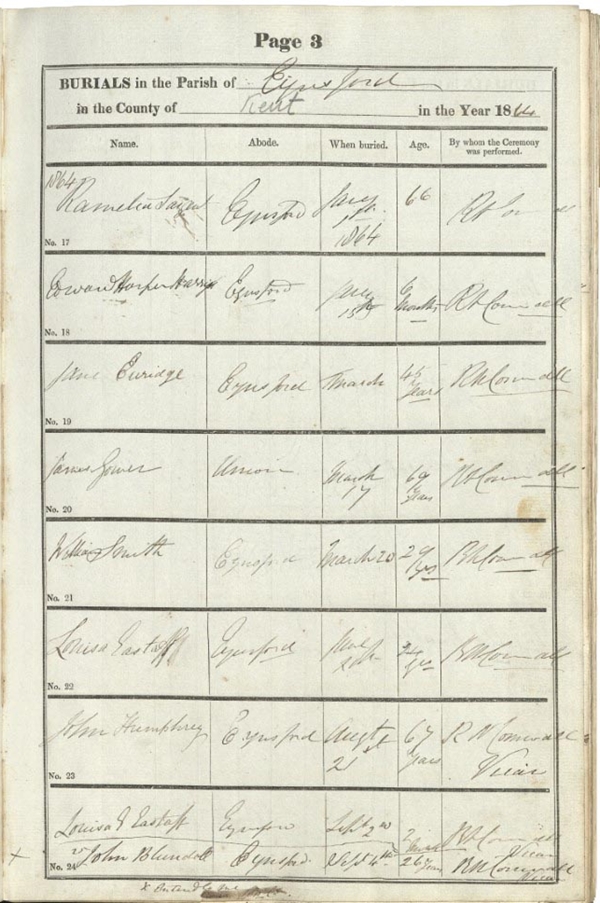 Page 3
BURIALS in the Parish of Eynsford
in the County of Kent in the Year 1864
Name. Abode. When buried. Age. By whom the Ceremony was performed.
1864
Eynsford 1864 66
No. 17
Edward Harper Eynsford 6 Months
No. 18
Jane Euridge Eynsford March 45 Years R W Cornwall
No. 19
James Gower Union March 17 69 Years R W Cornwall
No. 20
William Smith Eynsford March 20 29 yrs R W Cornwall
No. 21
Louisa Eastaff Eynsford yrs R W Cornwall
No. 22
John Humphrey Eynsford Augst 21st 67 Years R W Cornwall Vicar
No. 23
Louisa E Eastaff Eynsford Sept 2nd R W Cornwall Vicar
No. 24 John Blundell Eynsford Sept 4th 26 Years R W Cornwall Vicar
x Entered